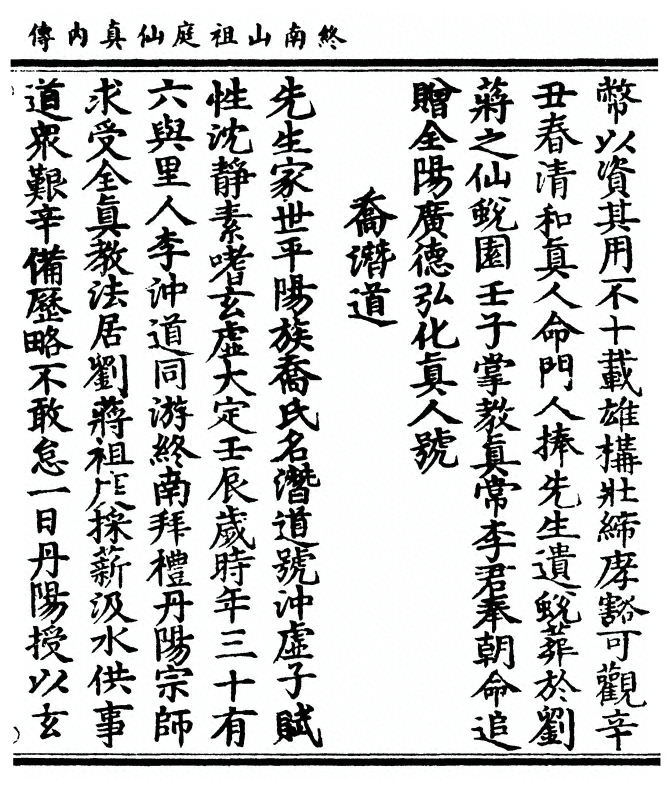 終南山祖庭仙真內傳
幣以資其用不十載雄構壯締摩豁可觀辛
丑春清和真人命門人捧先生遺蛻葬於劉
蔣之仙蛻園壬子掌教真常李君奉朝命追
贈全陽廣德弘化真人號
喬潛道
先生家世平陽族喬氏名潛道號沖虛子賦
性沈靜素嗜玄虛大定壬辰歲時年三十有
六與里人李沖道同游終南拜禮丹陽宗師
求受全真教法居劉蔣祖庭採薪汲水供事
道眾艱辛備歷略不敢怠一日丹陽授以玄